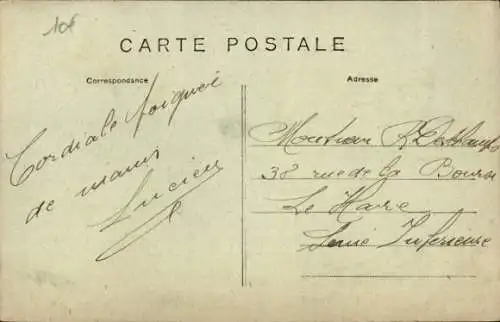 10f
CARTE POSTALE
Correspondance
Adresse
Cordiale poignée
de mains
Lucien
Monsieur R
38 rue de la Bourse
Le Havre
Seine Inférieure